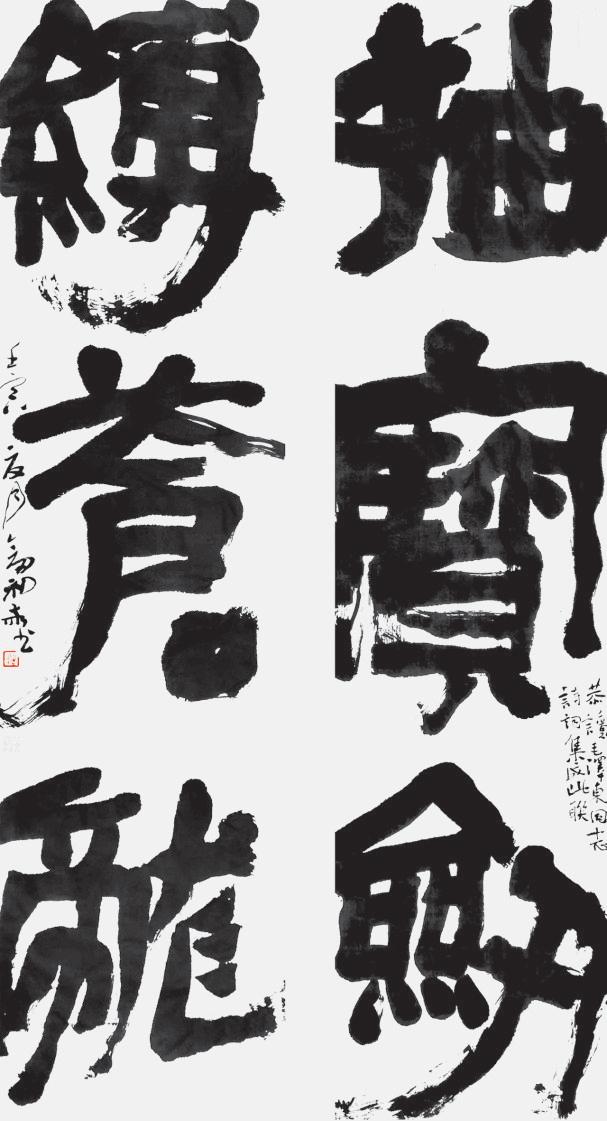 抽寶劍
恭讀毛澤東同志
詩詞集成此聯
縛蒼龍
壬寅